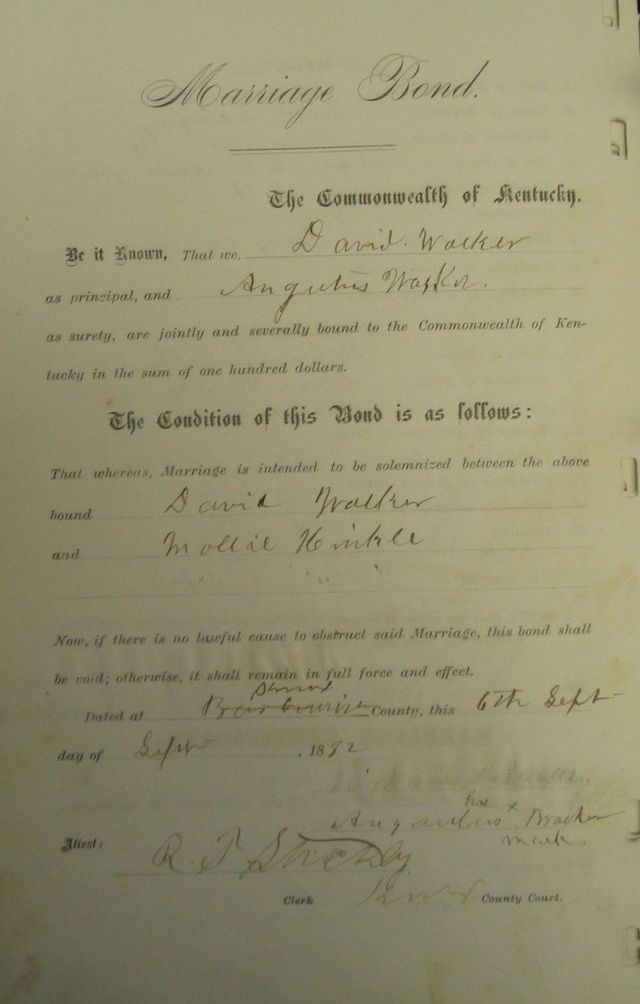 Marriage Bond.
The Commonwealth of Kentucky.
Be it Known, That we, David Walker
as principal, and Angustus Walker.
as surety, are jointly and severally bound to the Commonwealth of Ken-
tucky in the sum of one hundred dollars.
The Condition of this Bond is as follows:
That whereas, Marriage is intended to be solemnized between the above
bound David Walker
and Mollie Hinkle
Now, if there is no lawful cause to obstruct said Marriage, this bond shall
be void; otherwise, it shall remain in full force and effect.
Dated at Barbourville County, this 6th Sept
day of Sept , 18
his x
Walker
mark
Attest: R. T.
Clerk Knox County Court.